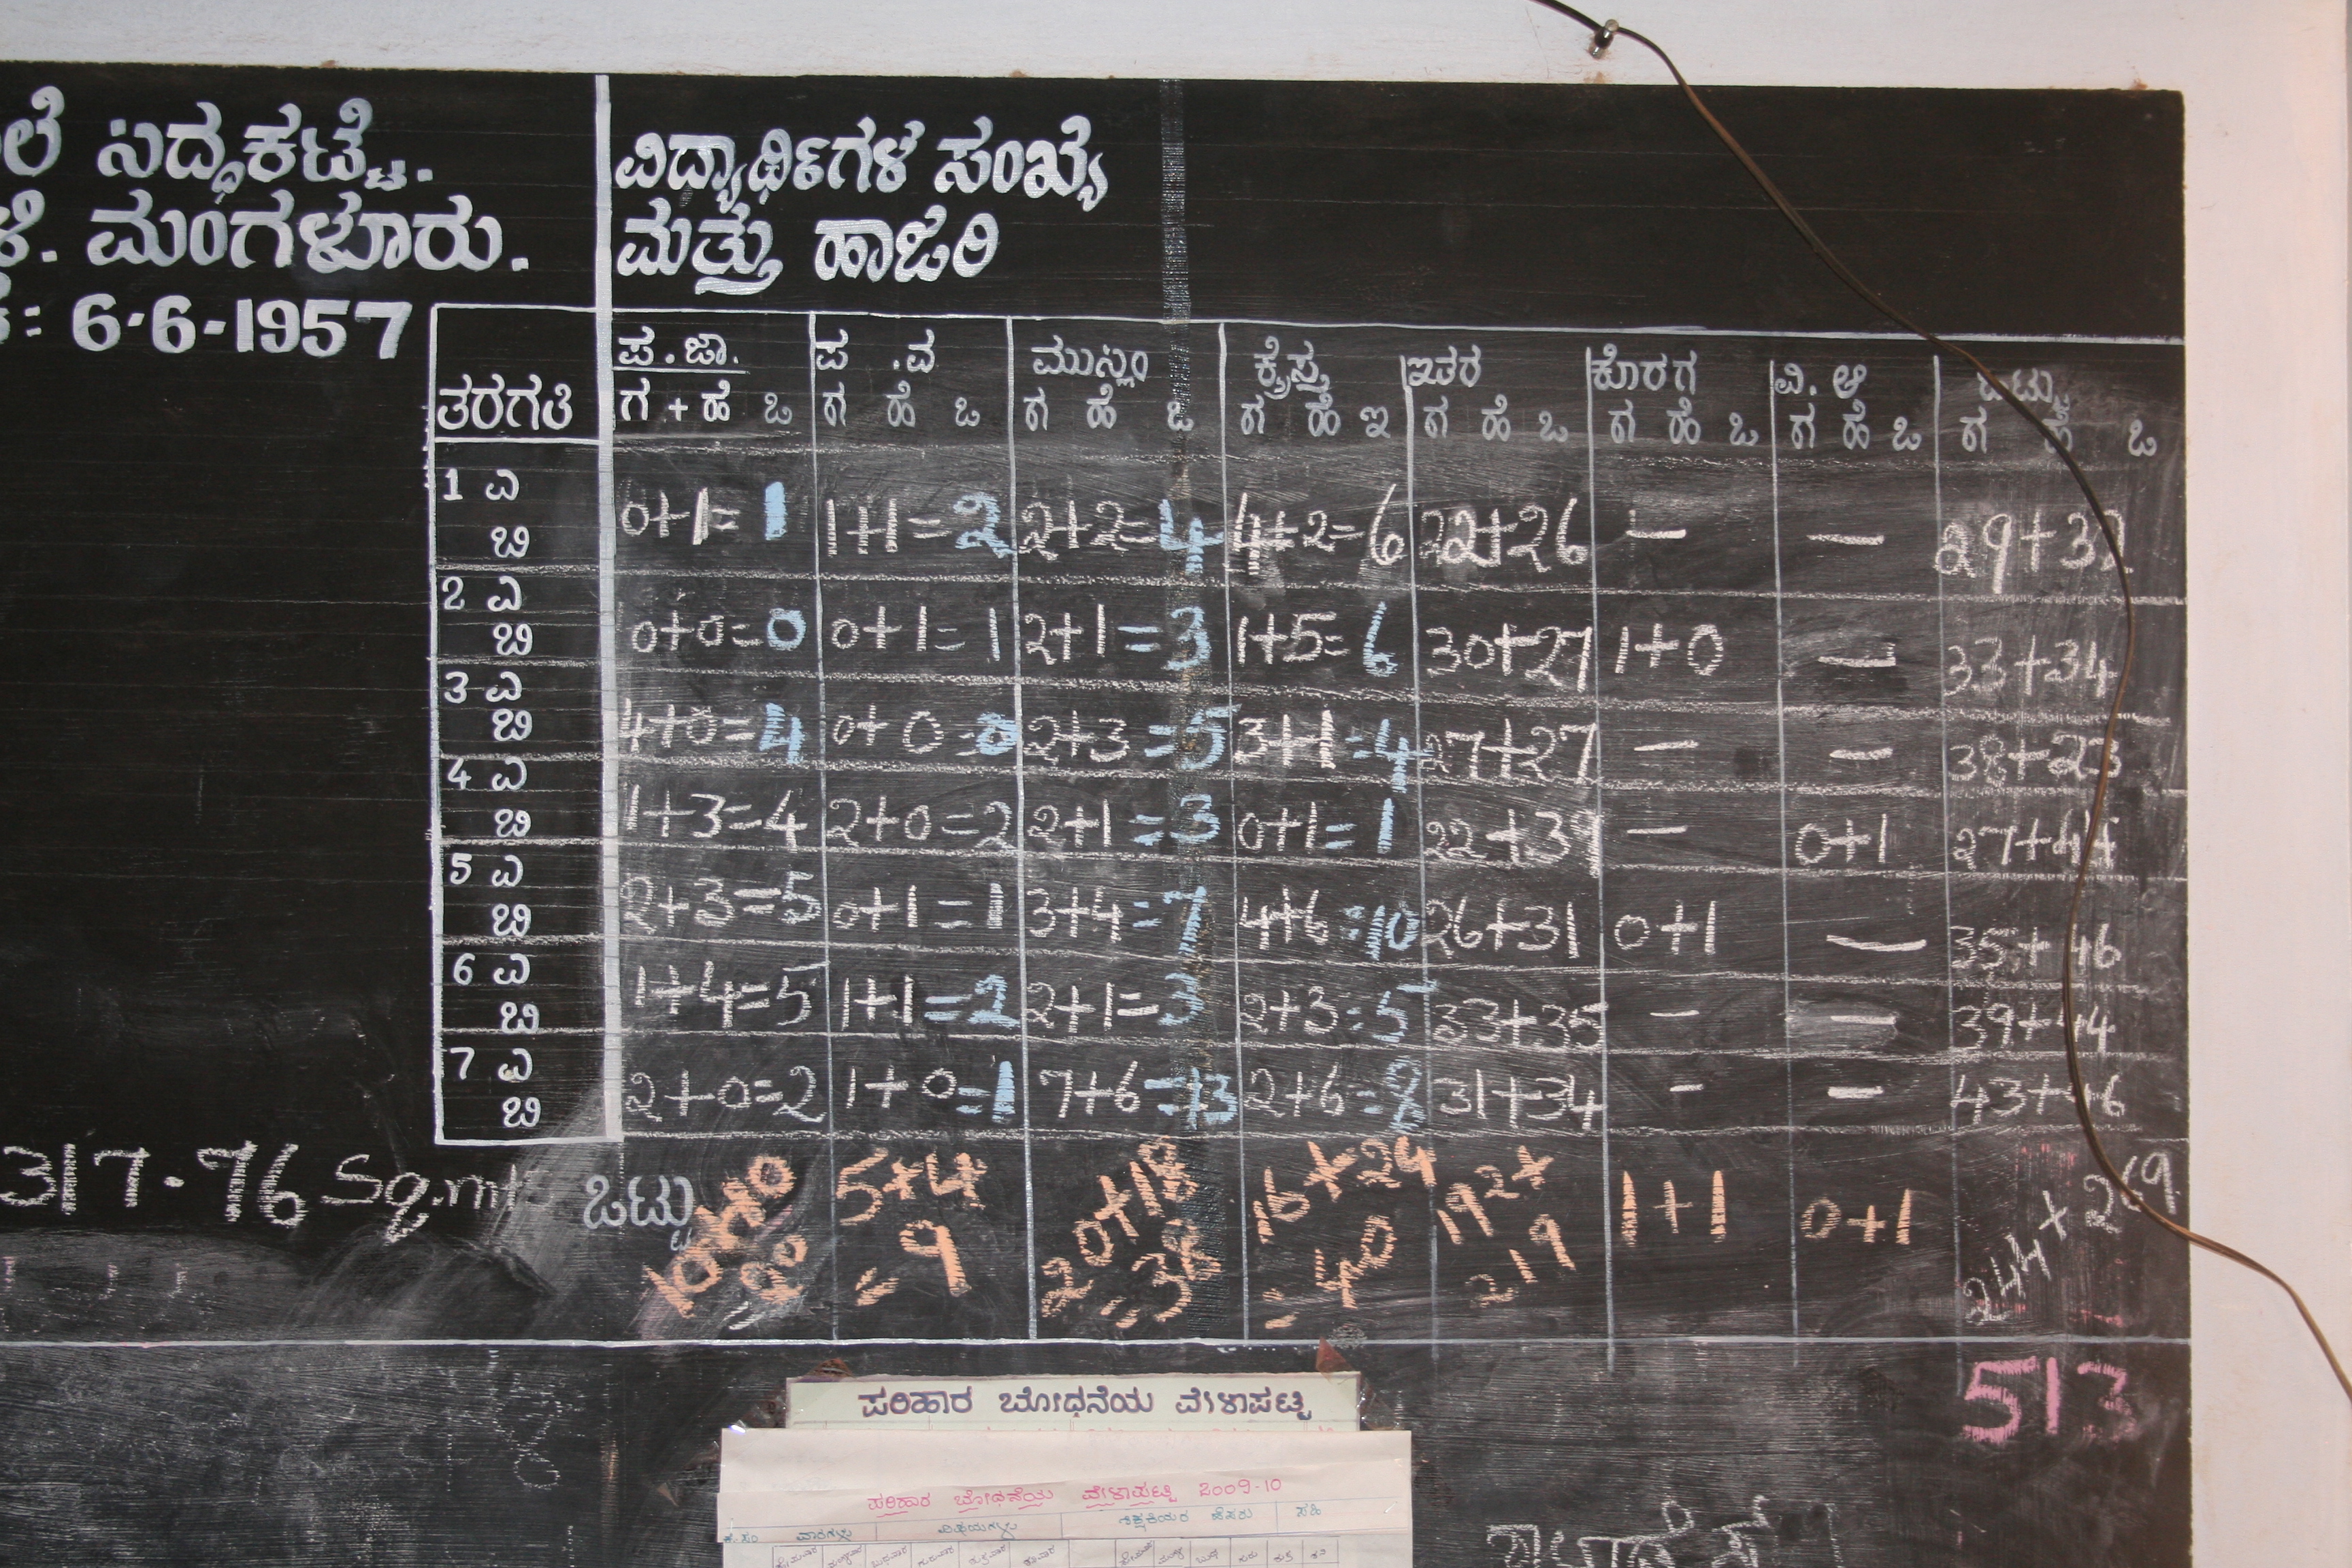 ಸಿದ್ಧಕಟ್ಟೆ.
ಮಂಗಳೂರು.
6-6-1957
ವಿದ್ಯಾರ್ಥಿಗಳ ಸಂಖ್ಯೆ
ಮತ್ತು ಹಾಜರಿ
ತರಗತಿ ಪ.ಜಾ. ಪ.ವ ಮುಸ್ಲಿಂ ಕ್ರೈಸ್ತ ಇತರ ಕೊರಗ ವಿ.ಆ ಒಟ್ಟು
ಗ + ಹೆ ಒ ಗ ಹೆ ಒ ಗ ಹೆ ಒ ಗ ಹೆ ಇ ಗ ಹೆ ಒ ಗ ಹೆ ಒ ಗ ಹೆ ಒ ಗ ಹೆ ಒ
1 ಎ ಬಿ 0+1=1 1+1=2 2+2=4 4+2=6 22+26 — — 29+32
2 ಎ ಬಿ 0+0=0 0+1=1 2+1=3 1+5=6 30+27 1+0 — 33+34
3 ಎ ಬಿ 4+0=4 0+0=0 2+3=5 3+1=4 27+27 — — 38+23
4 ಎ ಬಿ 1+3=4 2+0=2 2+1=3 0+1=1 22+39 — 0+1 27+44
5 ಎ ಬಿ 2+3=5 0+1=1 3+4=7 4+6=10 26+31 0+1 — 35+46
6 ಎ ಬಿ 1+4=5 1+1=2 2+1=3 2+3=5 33+35 — — 39+44
7 ಎ ಬಿ 2+0=2 1+0=1 7+6=13 2+6=8 31+34 — — 43+46
317.76 Sq.mt ಒಟ್ಟು 5+4=9 20+18=38 16+24=40 192+219 1+1 0+1 244+269
513
ಪರಿಹಾರ ಬೋಧನೆಯ ವೇಳಾಪಟ್ಟಿ
ಪರಿಹಾರ ಬೋಧನೆಯ ವೇಳಾಪಟ್ಟಿ 2009-10
ಕ್ರ.ಸಂ ವಾರಗಳು ವಿಷಯಗಳು ಶಿಕ್ಷಕಿಯರ ಹೆಸರು ಸಹಿ